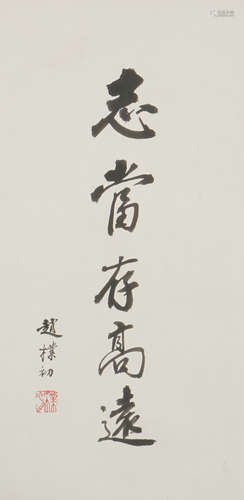 志當存高遠
趙樸初